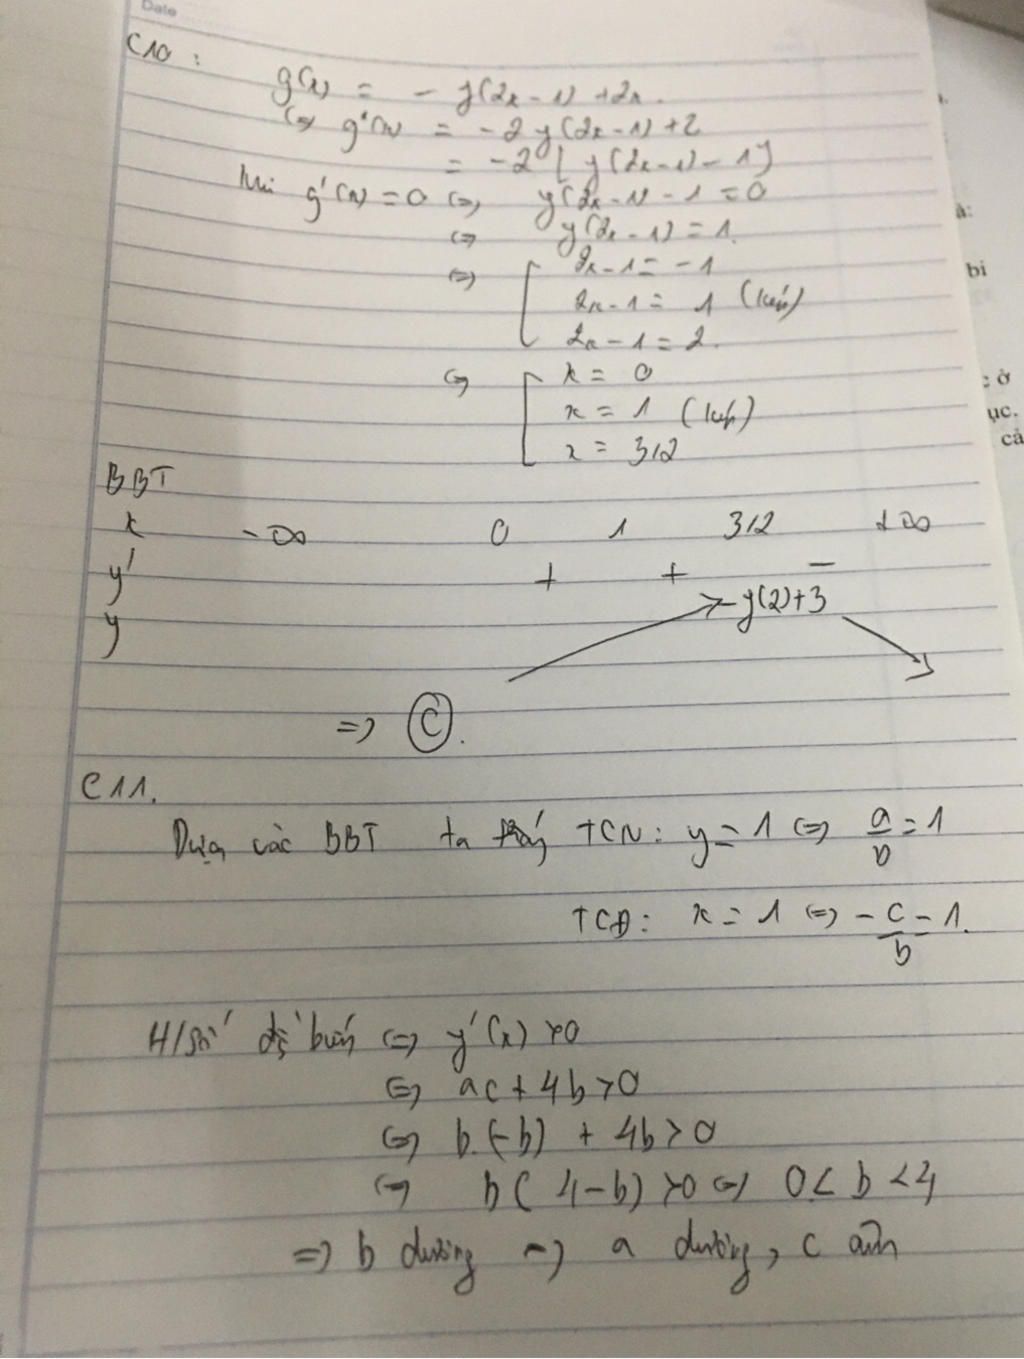 Date
C10 :
g(x) = - y(2x - 1) + 2x.
(=) g'(x) = -2 y(2x - 1) + 2
= -2 [ y(2x - 1) - 1 ]
g'(x) = 0 (=) y(2x - 1) - 1 = 0
(=) y(2x - 1) = 1.
(=) 2x - 1 = -1
2x - 1 = 1 (kép)
2x - 1 = 2.
(=) x = 0
x = 1 (kép)
x = 3/2
BBT
x -∞ 0 1 3/2 +∞
y' + + -
y -y(2)+3
=) C.
C11.
Dựa vào BBT ta thấy TCN: y = 1 (=) a/b = 1
TCĐ: x = 1 (=) -c/b = 1.
H/số đ̣ biến (=) y'(x) > 0
(=) ac + 4b > 0
(=) b.(-b) + 4b > 0
(=) b(4 - b) > 0 (=) 0 < b < 4
=) b dương =) a dương, c âm
bi
: ở
ục.
cả